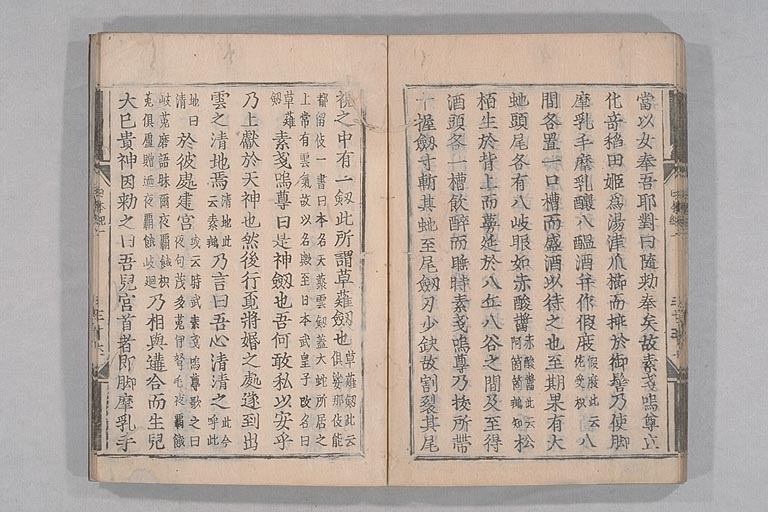 當以女奉吾耶對曰隨勅奉矣故素戔嗚尊立
化奇稻田姬爲湯津爪櫛而揷於御髻乃使脚
摩乳手摩乳釀八醞酒幷作假庪假庪此云佐受枳八
間各置一口槽而盛酒以待之也至期果有大
虵頭尾各有八岐眼如赤酸醬赤酸醬此云阿箇箇鵝知松
栢生於背上而蔓延於八丘八谷之間及至得
酒頭各一槽飮醉而睡時素戔嗚尊乃拔所帶
十握劒寸斬其虵至尾劒刃少缺故割裂其尾
視之中有一劒此所謂草薙劒也草薙劒此云俱娑那伎能
都留伎一書曰本名天叢雲劒蓋大虵所居之
上常有雲氣故以名歟至日本武皇子改名曰
草薙劒素戔嗚尊曰是神劒也吾何敢私以安乎
乃上獻於天神也然後行覓將婚之處遂到出
雲之清地焉清地此云素鵝乃言曰吾心清清之此今呼此
地曰清於彼處建宮或云時武素戔嗚尊歌之曰夜句茂多菟伊弩毛夜覇餓
岐菟磨語昧爾夜覇餓枳菟俱盧贈迺夜覇餓岐廻乃相與遘合而生兒
大己貴神因勅之曰吾兒宮首者即脚摩乳手